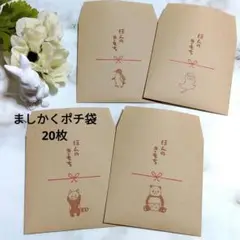 ほんの
きもち
ほんの
きもち
ましかくポチ袋
20枚
ほんの
きもち
ほんの
きもち